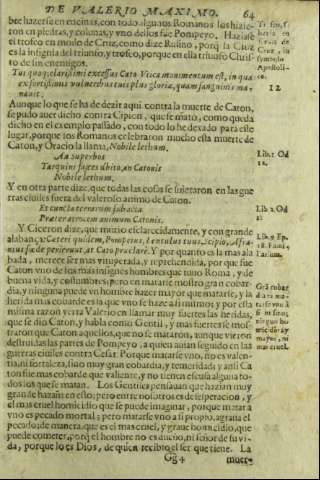 DE VALERIO MAXIMO. 64
bre hazerse en encinas, con todo algunos Romanos los hizie-
ron en piedras, y colunas, y vno dellos fue Pompeyo. Hazia se
el trofeo en modo de Cruz, como dize Rufino, porq̃ la Cruz
es la insignia del triunfo, y trofeo, porque en ella triunfo Chris-
to de sus enemigos.
Tus quoq; clarissimi excessus Cato Vtica monumentum est, in qua
ex fortissimis vulneribus tuis plus gloriæ, quam sanguinis ma-
nauit.
12
Aunque lo que se ha de dezir aqui contra la muerte de Caton,
se pudo auer dicho contra Cipion, que se mato, como queda
dicho en el exemplo passado, con todo lo he dexado para este
lugar, porque los Romanos celebraron mucho esta muerte de
Caton, y Oracio la llama, Nobile lethum.
An superbos
Tarquini fasces dubito, an Catonis
Nobile lethum.
Lib. 1. Od
12.
Y en otra parte dize, que todas las cosas se sujetaron en las gue
rras ciuiles fuera del valeroso animo de Caton.
Et cuncta terrarum subacta
Præter atrocem animum Catonis.
Lib. 2. Od
Y Ciceron dize, que murio esclarecidamente, y con grande
alabança: Cateri quidem, Pompeius, Lentulus tuus, Scipio, Afra-
nius fœde perierunt, at Cato præclarè. Y por quanto es la mas ala
bada, merece ser mas vituperada, y reprehendida, por que fue
Caton vno de los mas insignes hombres que tuuo Roma, y de
buena vida, y costumbres: pero en matarse mostro gran cobar-
dia, y ninguna puede vn hombre hazer mayor que matarse, y la
herida mas cobarde es la que vno se haze a si mismo; y por esta
misma razon yerra Valerio en llamar muy fuertes las heridas,
que se dio Caton, y habla como Gentil, y mas fuertes se mos-
traron que Caton aquellos, que no se mataron, aunque vieron
destruidas las partes de Pompeyo, a quien auian seguido en las
guerras ciuiles contra Cesar. Porque matarse vno, no es valen-
tia ni fortaleza, sino muy gran cobardia, y temeridad; y assi Ca
ton fue mas cobarde que valiente, y no tienen escusa alguna to-
dos los que se matan. Los Gentiles pensauan que hazian muy
gran de hazaña en esto; pero entre nosotros es desesperacion, y
el mas cruel homicidio que se puede imaginar, porque matar a
vno es pecado mortal; pero matarse vno a si propio, agraua el
pecado de manera, que es el mas cruel, y graue homicidio, que
puede cometer, porq̃ el hombre no es dueño, ni señor de su vi-
da, porque lo es Dios, de quien recibio el ser que tiene. La
Gg 4 muer-